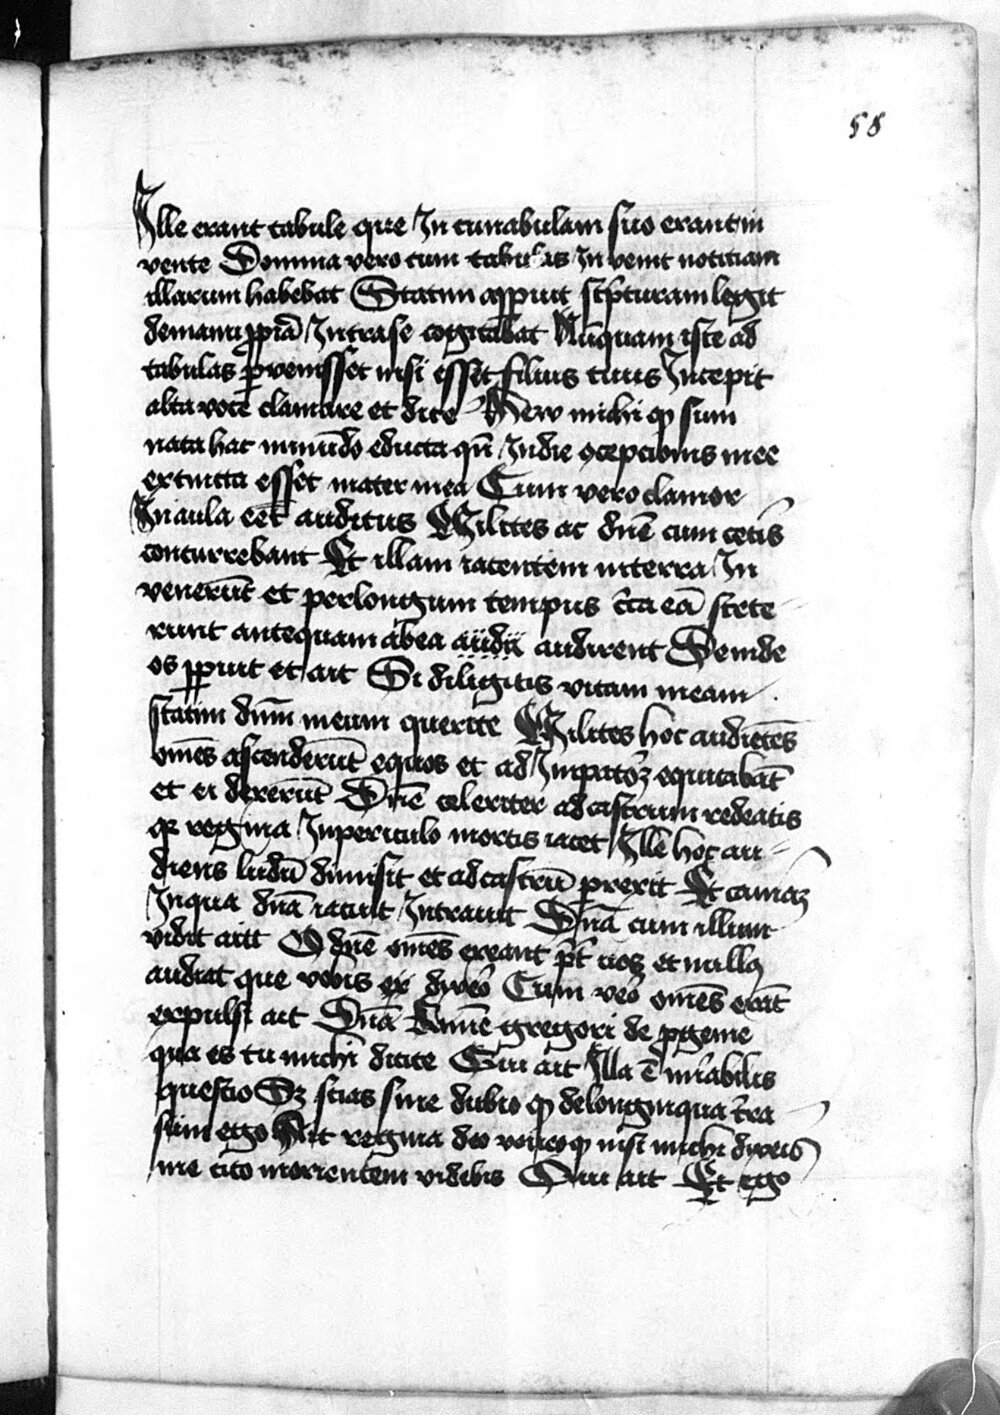 58
Ille erant tabule que In cunabulam suo erant in
vente Domina vero cum tabulas In venit notitiam
illarum habebat Statim apꝑuit scpturam legit
de manu ꝓpiā Intra se cogitabat Nūquam iste ad
tabulas ꝑvenisset nisi esset filius tuus Incepit
alta voce clamare et dice Hew michi ꝙ sum
nata hac in mūdo educta qn̄ In die ꝯcepcionis mee
extincta esset mater mea Cum vero clamor
In aula eēt auditus Milites ac dn̄e cum cetis
concurrebant Et illam iacentem in terra In
venerūt et per longum tempus c̄ca eā stete
runt antequam ab ea audirent Deinde
os apꝑuit et ait Si diligitis vitam meam
statim dn̄m meum querite Milites hoc audietēs
om̄es ascenderūt equos et ad Impatoꝝ equitabāt
et ei dexerūt Dn̄e celeriter ad castrum redeatis
qꝛ regina In periculo mortis iacet Ille hoc au
diens ludū dimisit et ad castrū prexit Et camaꝝ
In qua dn̄a iacuit Intrauit Dn̄a cum illum
vidit ait O dn̄e om̄es exeant p̄t nos et nullꝯ
audiat que vobis dixeō Cum veō om̄es erāt
expulsi ait Dn̄a Gregori de ꝓgenie
qua es tu michi dicite Qui ait Illa ē mirabilis
questio Sꝫ scias sine dubio ꝙ de longinqua t̄ra
sum ego Ait regina deo voueo ꝙ nisi michi dixeis
me cito morientem videbis Qui ait Et ego